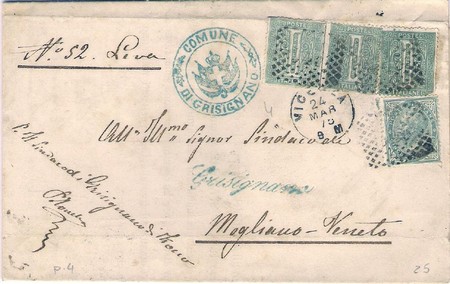 No. 52. Leva
COMUNE
DI GRISIGNANO
POSTE
POSTE
POSTE
VICENZA
24
MAR
75
9 M
All'Illmo Signor Sindaco di
Grisignano
Mogliano-Veneto
Il Sindaco di Grisignano di Zocco
p. 4
25